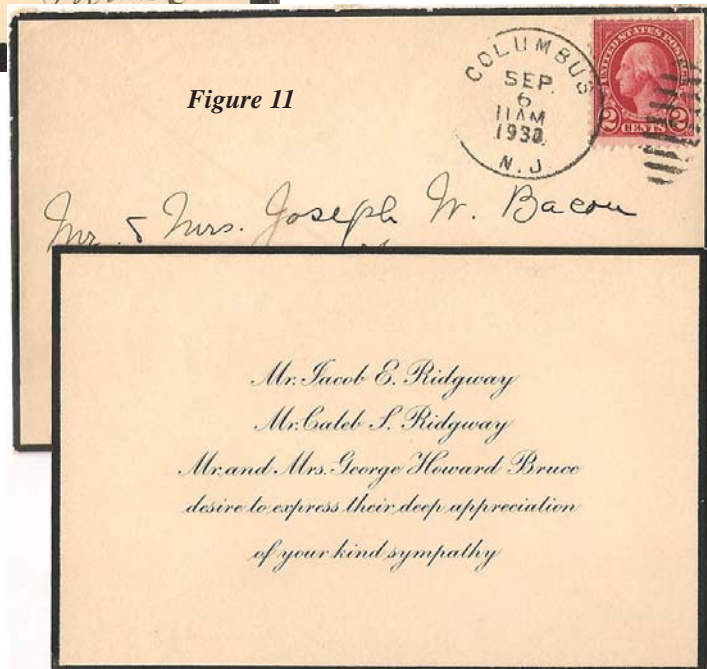 Figure 11
COLUMBUS
SEP
6
11AM
1930
N.J.
UNITED STATES POSTAGE
2 CENTS 2
Mr. & Mrs. Joseph W. Bacon
Mr. Jacob E. Ridgway
Mr. Caleb S. Ridgway
Mr. and Mrs. George Howard Bruce
desire to express their deep appreciation
of your kind sympathy